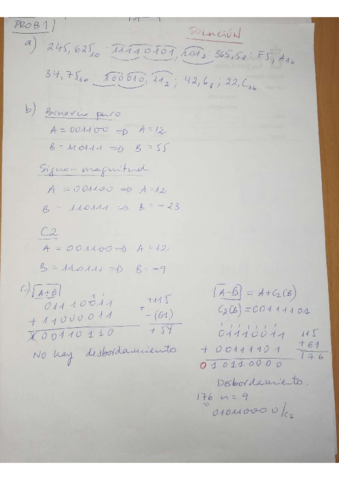 PROB 1)
SOLUCIÓN
a) 245,625₁₀ 11110101,101₂ 365,5₈; F5,A₁₆
34,75₁₀ 100010,11₂; 42,6₈; 22,C₁₆
b) Binario puro
A = 001100 => A = 12
B = 110111 => B = 55
Signo-magnitud
A = 001100 => A = 12
B = 110111 => B = -23
C2
A = 001100 => A = 12
B = 110111 => B = -9
c) [A+B]
01110011 +115
+ 11000011 -(61)
100110110 + 54
No hay desbordamiento
[A-B] = A + C₂(B)
C₂(B) = 00111101
01110011 115
+ 00111101 +61
010110000 176
Desbordamiento.
176 n = 9
010110000/C₂